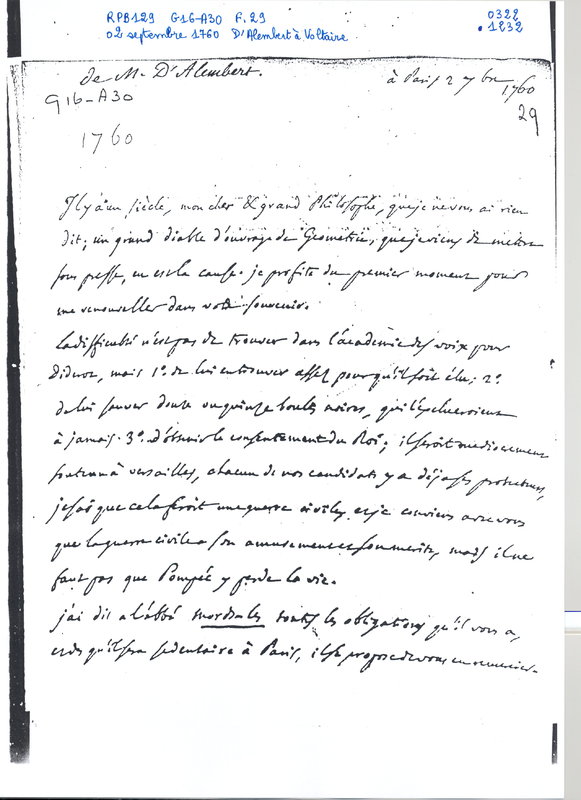 RPB129 G16-A30 F.29
02 septembre 1760 D'Alembert à Voltaire
0322
.1232
de M. D'Alembert.
à Paris 2 7bre 1760
G16-A30
29
1760
Il y a un siécle, mon cher & grand Philosophe, que je ne vous ai rien
dit; un grand diable d'ouvrage de Geometrie, que je viens de mettre
sous presse, en est la cause. je profite du premier moment pour
me renouveller dans votre souvenir.
La difficulté n'est pas de trouver dans l'académie des voix pour
Diderot, mais 1º. de lui en trouver assez pour qu'il soit élu; 2º.
de lui sauver douze ou quinze boules noires, qui l'excluroient
à jamais. 3º. d'obtenir le consentement du Roi; il seroit mediocrement
soutenu à versailles, chacun de nos candidats y a déja ses protecteurs,
je sais que cela seroit une guerre civile, et je conviens avec vous
que la guerre civile a son amusement et son merite, mais il ne
faut pas que Pompée y perde la vie.
j'ai dit a l'abbé mordsles toutes les obligations qu'il vous a,
et dès qu'il sera sedentaire à Paris, il se propose de vous en remercier.